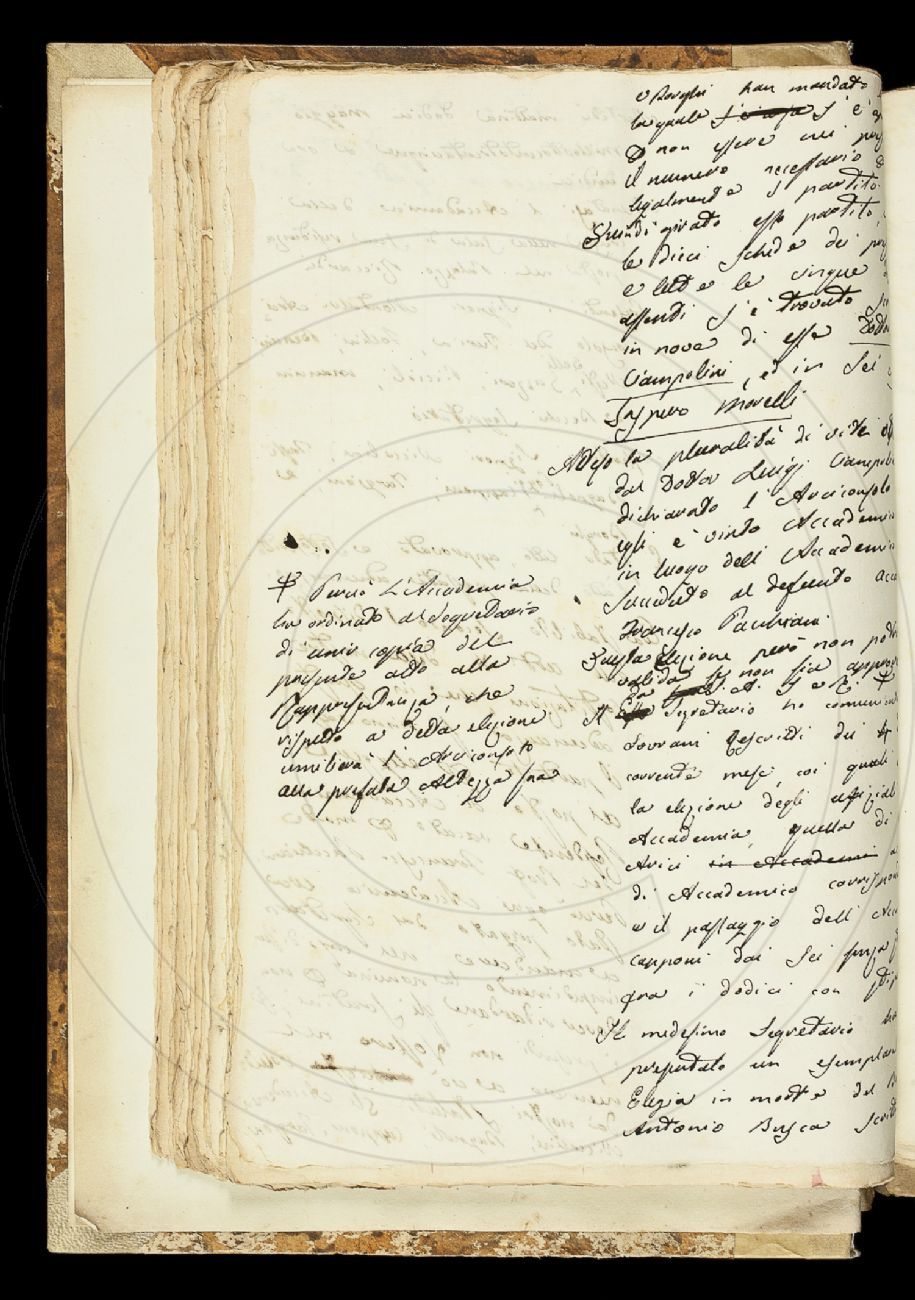 e Borghi han mandato
la quale s'è
non essere nei
il numero necessario
legalmente i partito
Quindi girato esso partito
le dieci schede dei
e lette le cinque
assenti s'è trovato
in nove di esse Dott
Ciampolini, ed in sei
Morelli
Atteso la pluralità di viti
dal Dottor Luigi Ciampol
dichiarato l'Arciconsolo
egli è vinto Accademico
in luogo dell'Accademico
defunto Acc
Francesco Pacchiani
Questa elezione però non pot
valida se non sia approv
Il Segretario ha comunicat
Sovrani Rescritti dei
corrente mese, coi quali
la elezione degli uffizial
Accademia, quella di
Arici in Accademi
di Accademico corrispon
e il passaggio dell'Acc
Capponi dai sei senza
fra i dodici con stip
Il medesimo Segretario ha
presentato un esemplar
Elegia in morte del
Antonio Busca scritt
Perciò L'Accademia
ha ordinato al Segretario
di unir copia del
presente atto alla
Rappresentanza, che
rispetto a detta elezione
umilierà l'Arciconsolo
alla prefata Altezza sua